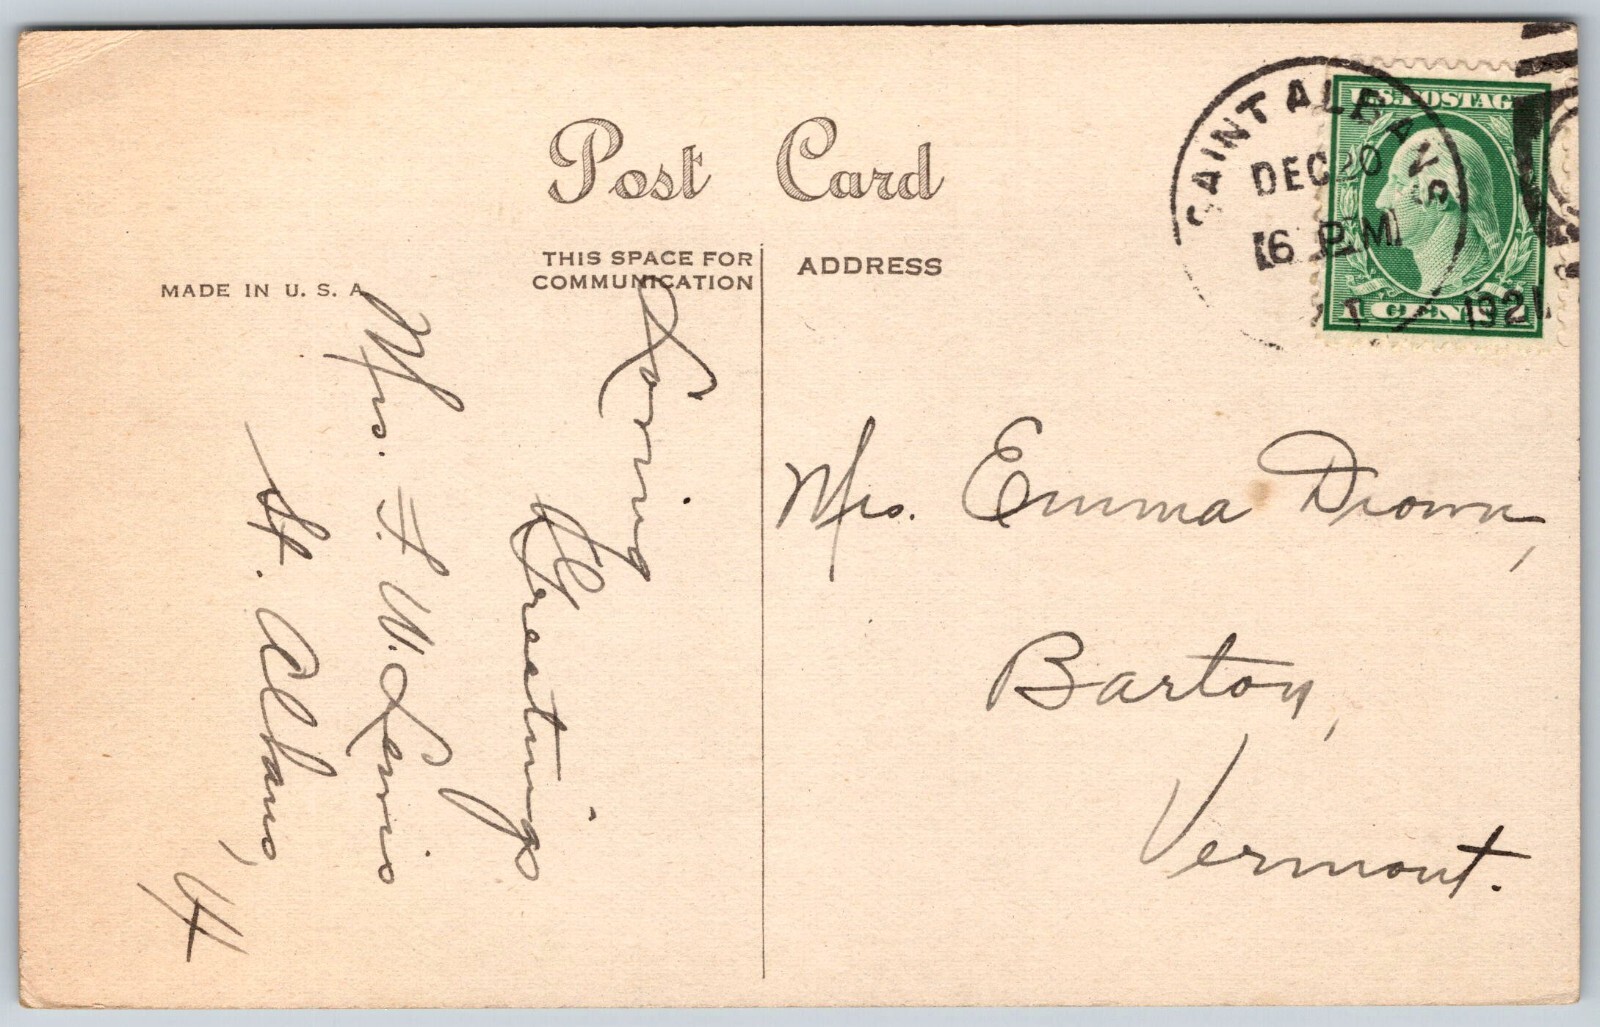 Post Card
THIS SPACE FOR
COMMUNICATION
ADDRESS
MADE IN U. S. A.
SAINT ALBANS
DEC 20
6 PM
1921
U.S. POSTAGE
1 CENT 1
Loving
Greetings
Mrs. F. W. Lewis
St. Albans,
Vt
Mrs. Emma Drown,
Barton,
Vermont.